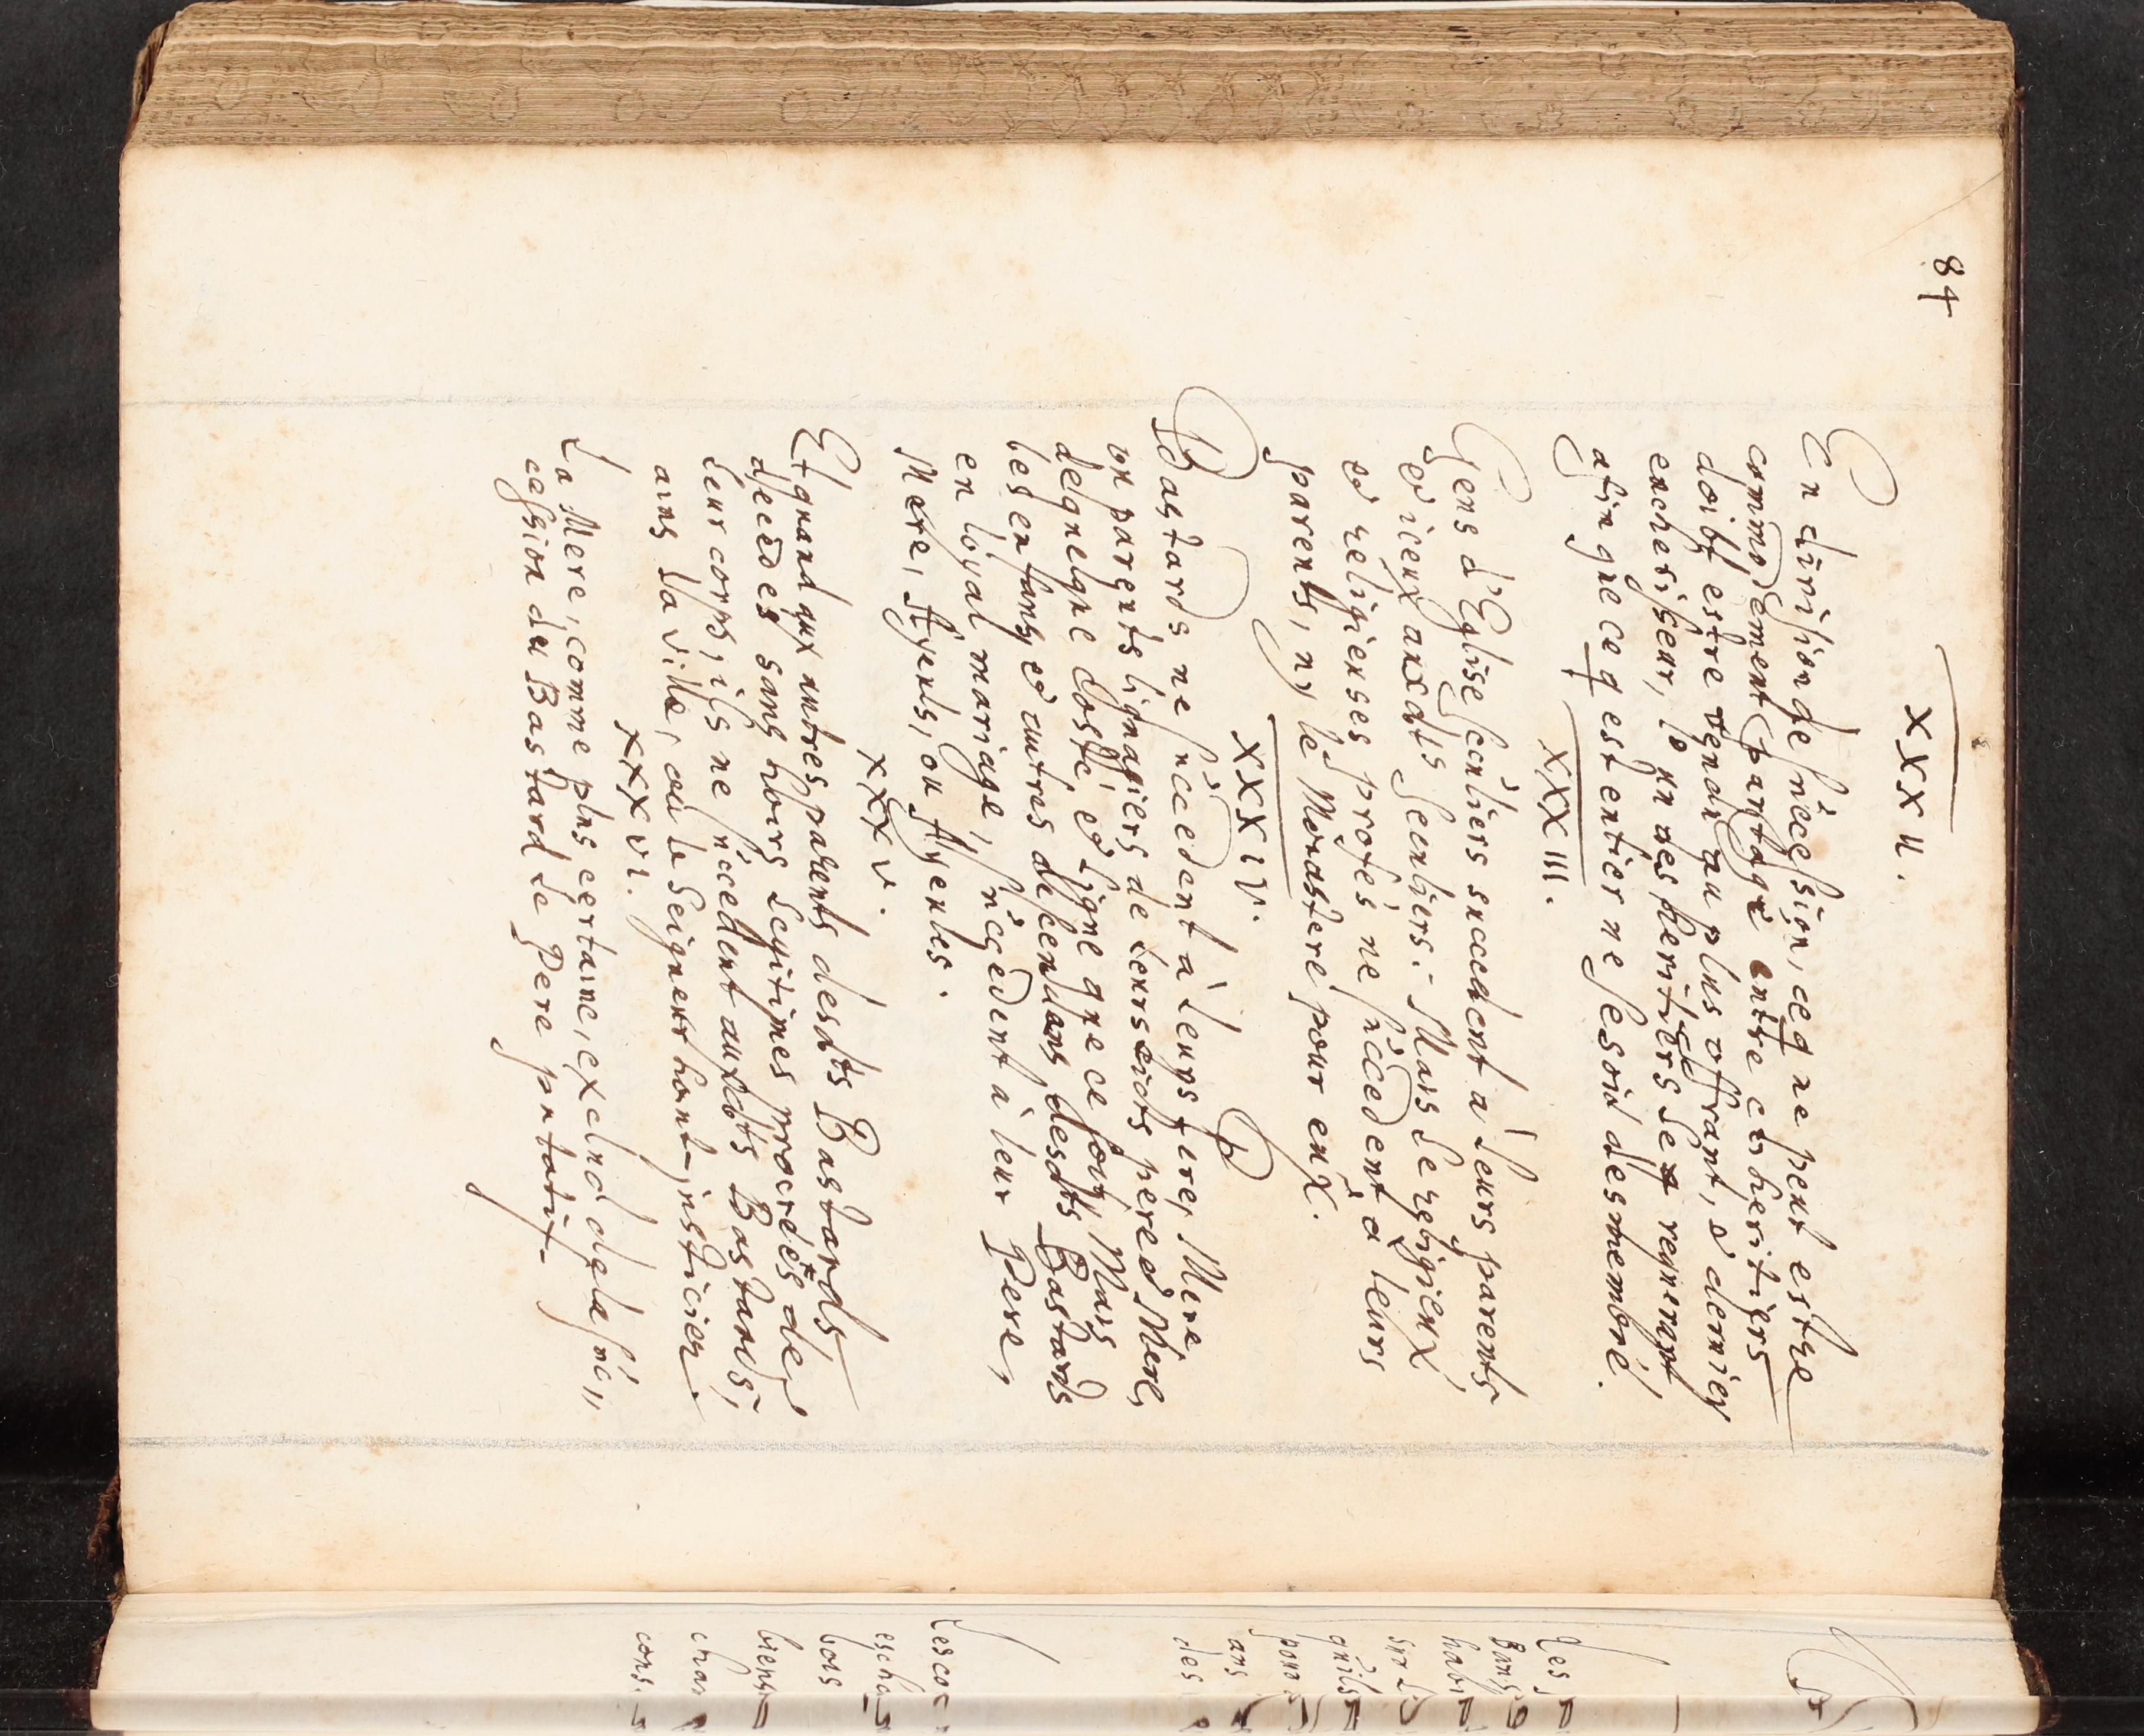 84
XXXII.
En division de succession, ceq ne peut estre
commodement partagé entre cohéritiers
doibt estre vendu au plus offrant, & dernier
encherisseur, lo un des heritiers le requerant
afin que ceq est entier ne se soit desmembré.
XXXIII.
Gens d'Eglise seculiers succedent à leurs parents
et iceux auxdts seculiers: Mais le religieux,
et religieuses profés ne succedent à leurs
parents, ny le Monastere pour eux.
XXXIV.
Bastards ne succedent à leurs frere, Mere
ou parents lignagiers de leursdicts pere et Mere,
de quelque costé, et ligne que ce soit, Mais
les enfans et autres descendans desdts Bastards
en loyal mariage, succedent à leur Pere,
Mere, Ayeuls, ou Ayeules.
XXXV.
Et quand aux autres parents desdts Bastards
decedes sans hoirs legitimes procreés de
leur corps, ils ne succedent auxdts Bastards,
ains la ville, ou le Seigneur haut-justicier.
XXXVI.
La Mere, comme plus certaine, exclud de la suc„
cession du Bastard le Pere putatif.
Les
Bans
habi
sur l
quils
pour
ans
des
Lescoc
escha
bois
biens
char
cons